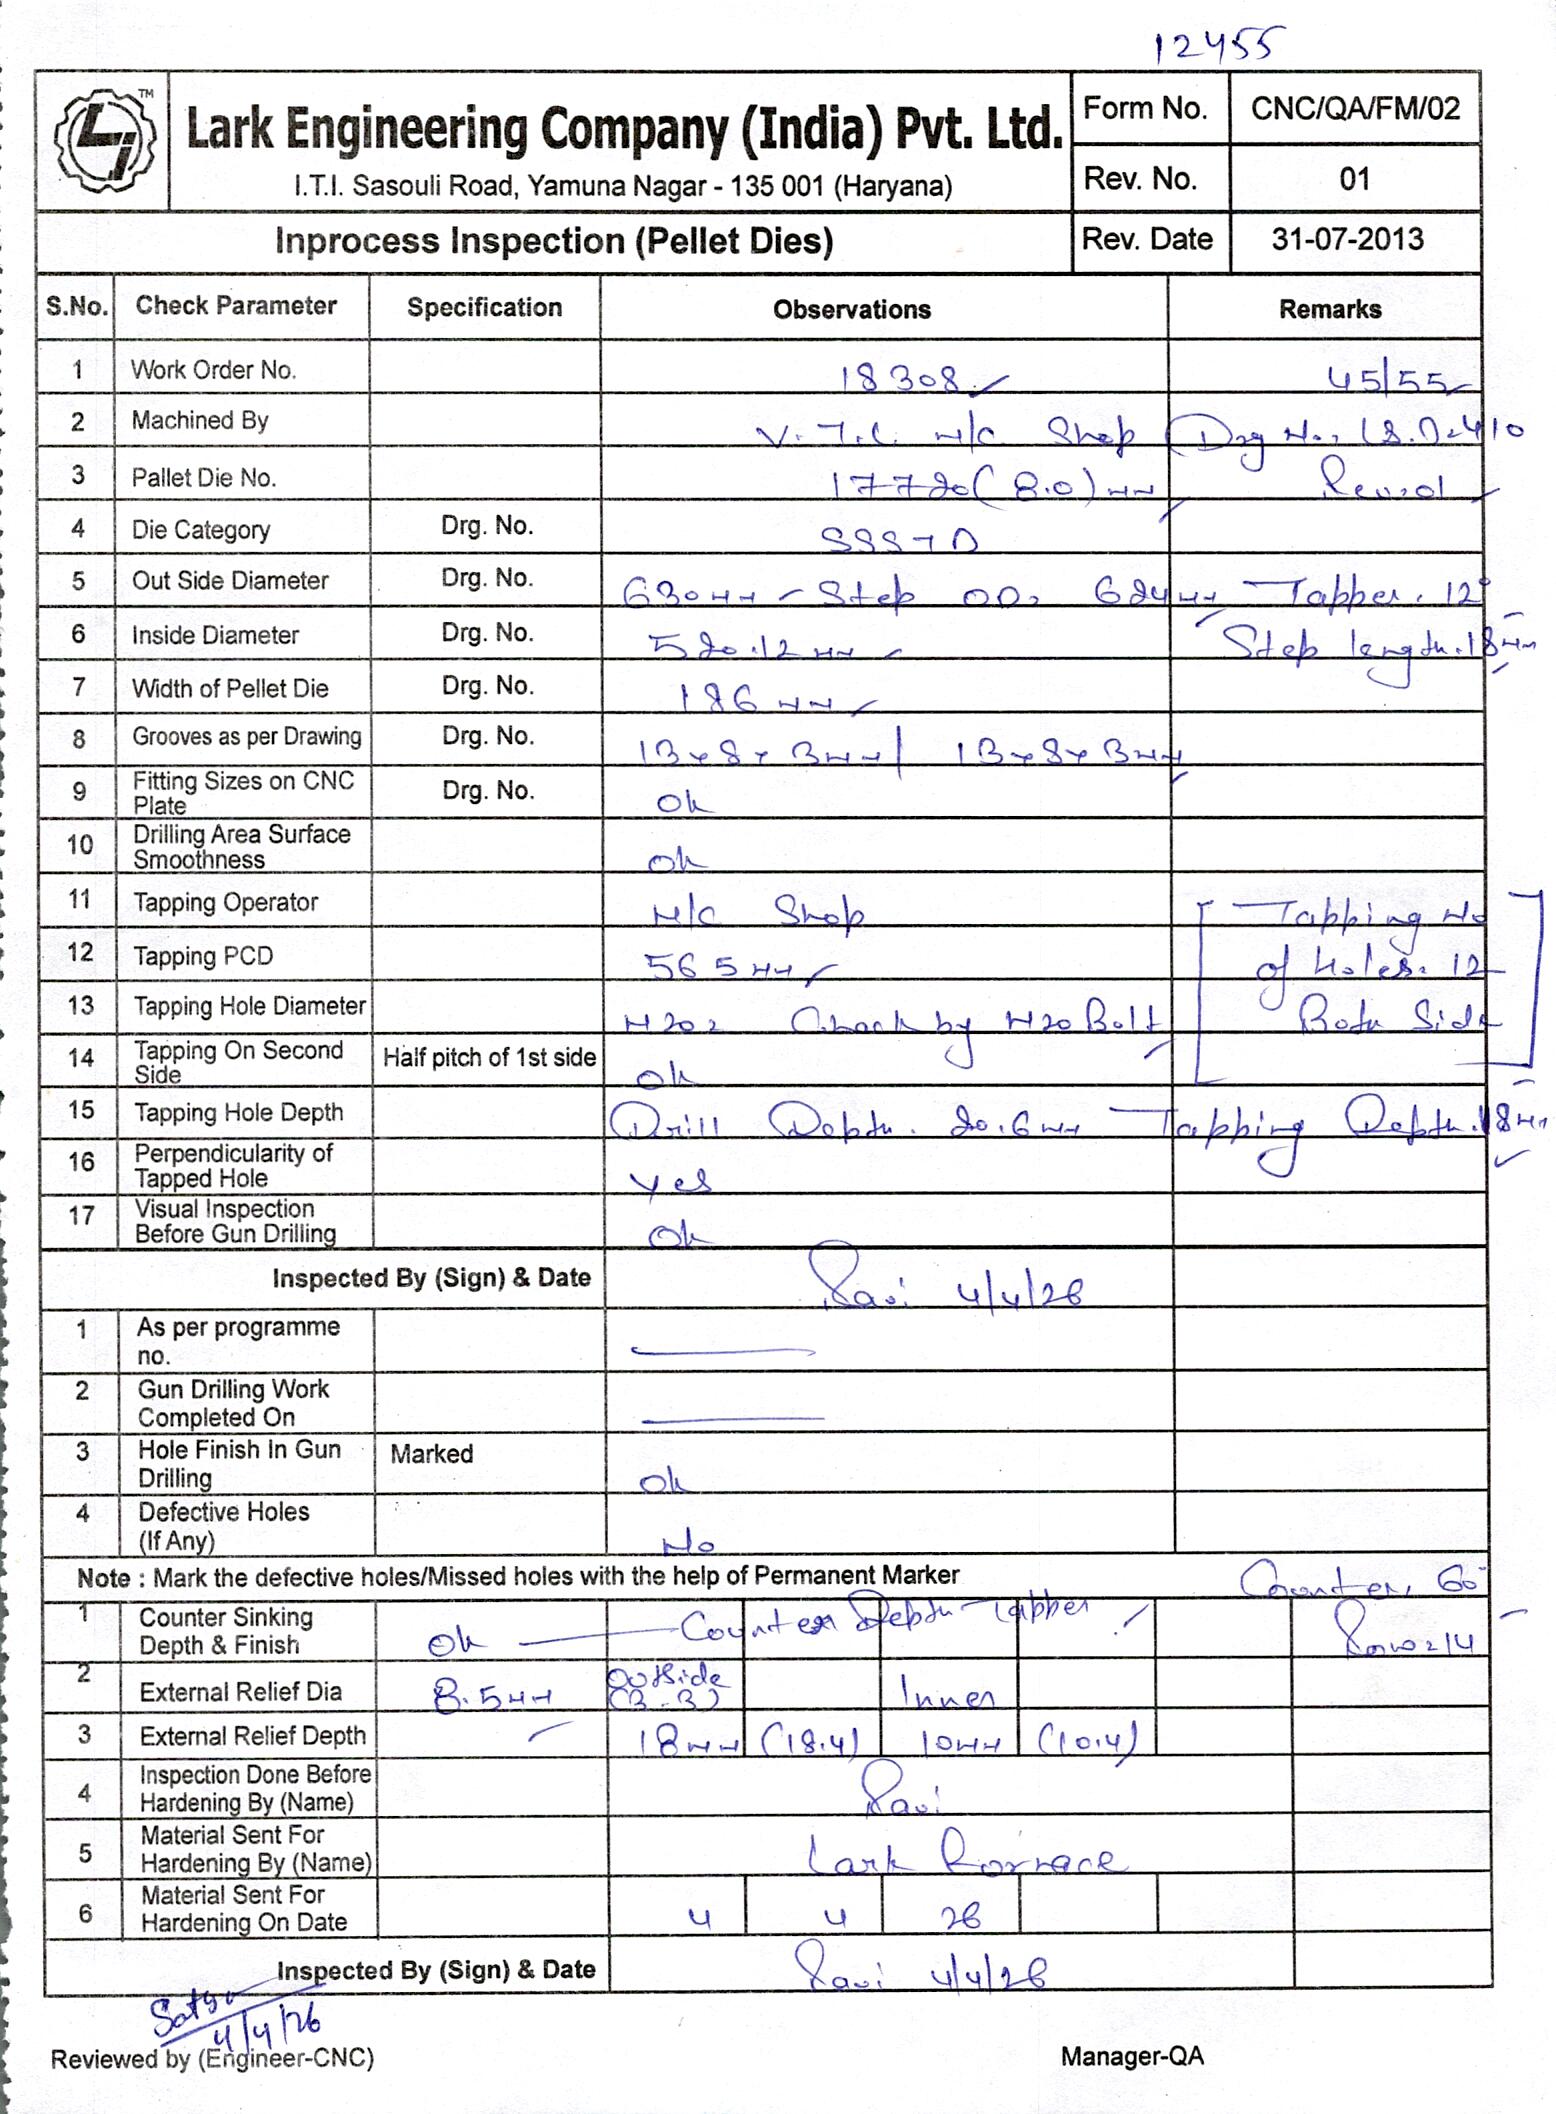 12455
TM
Lark Engineering Company (India) Pvt. Ltd.
I.T.I. Sasouli Road, Yamuna Nagar - 135 001 (Haryana)
Form No. CNC/QA/FM/02
Rev. No. 01
Inprocess Inspection (Pellet Dies)
Rev. Date 31-07-2013
S.No. Check Parameter Specification Observations Remarks
1 Work Order No. 18308 45/55
2 Machined By V.T.L. M/C Shop Drg No.
3 Pallet Die No. 17720 (8.0) mm
4 Die Category Drg. No. SSSTD
5 Out Side Diameter Drg. No. 630mm Step OD. 624mm Tapper. 12°
6 Inside Diameter Drg. No. 520.12 mm Step length. 18mm
7 Width of Pellet Die Drg. No. 186 mm
8 Grooves as per Drawing Drg. No. 13x8x3mm / 13x8x3mm
9 Fitting Sizes on CNC Plate Drg. No. Ok
10 Drilling Area Surface Smoothness Ok
11 Tapping Operator M/C Shop Tapping No
12 Tapping PCD 565mm of Holes. 12
13 Tapping Hole Diameter M20 Check by M20 Bolt Both Side
14 Tapping On Second Side Half pitch of 1st side Ok
15 Tapping Hole Depth Drill Depth. 20.6mm Tapping Depth. 18mm
16 Perpendicularity of Tapped Hole Yes
17 Visual Inspection Before Gun Drilling Ok
Inspected By (Sign) & Date Ravi 4/4/26
1 As per programme no.
2 Gun Drilling Work Completed On
3 Hole Finish In Gun Drilling Marked Ok
4 Defective Holes (If Any) No
Note : Mark the defective holes/Missed holes with the help of Permanent Marker Counter. 60°
1 Counter Sinking Depth & Finish Ok Counter Depth Tapper Row=14
2 External Relief Dia 8.5mm Outside (3-3) Inner
3 External Relief Depth 18mm (18.4) 10mm (10.4)
4 Inspection Done Before Hardening By (Name) Ravi
5 Material Sent For Hardening By (Name) Lark Fornace
6 Material Sent For Hardening On Date 4 4 26
Inspected By (Sign) & Date Ravi 4/4/26
4/4/26
Reviewed by (Engineer-CNC) Manager-QA